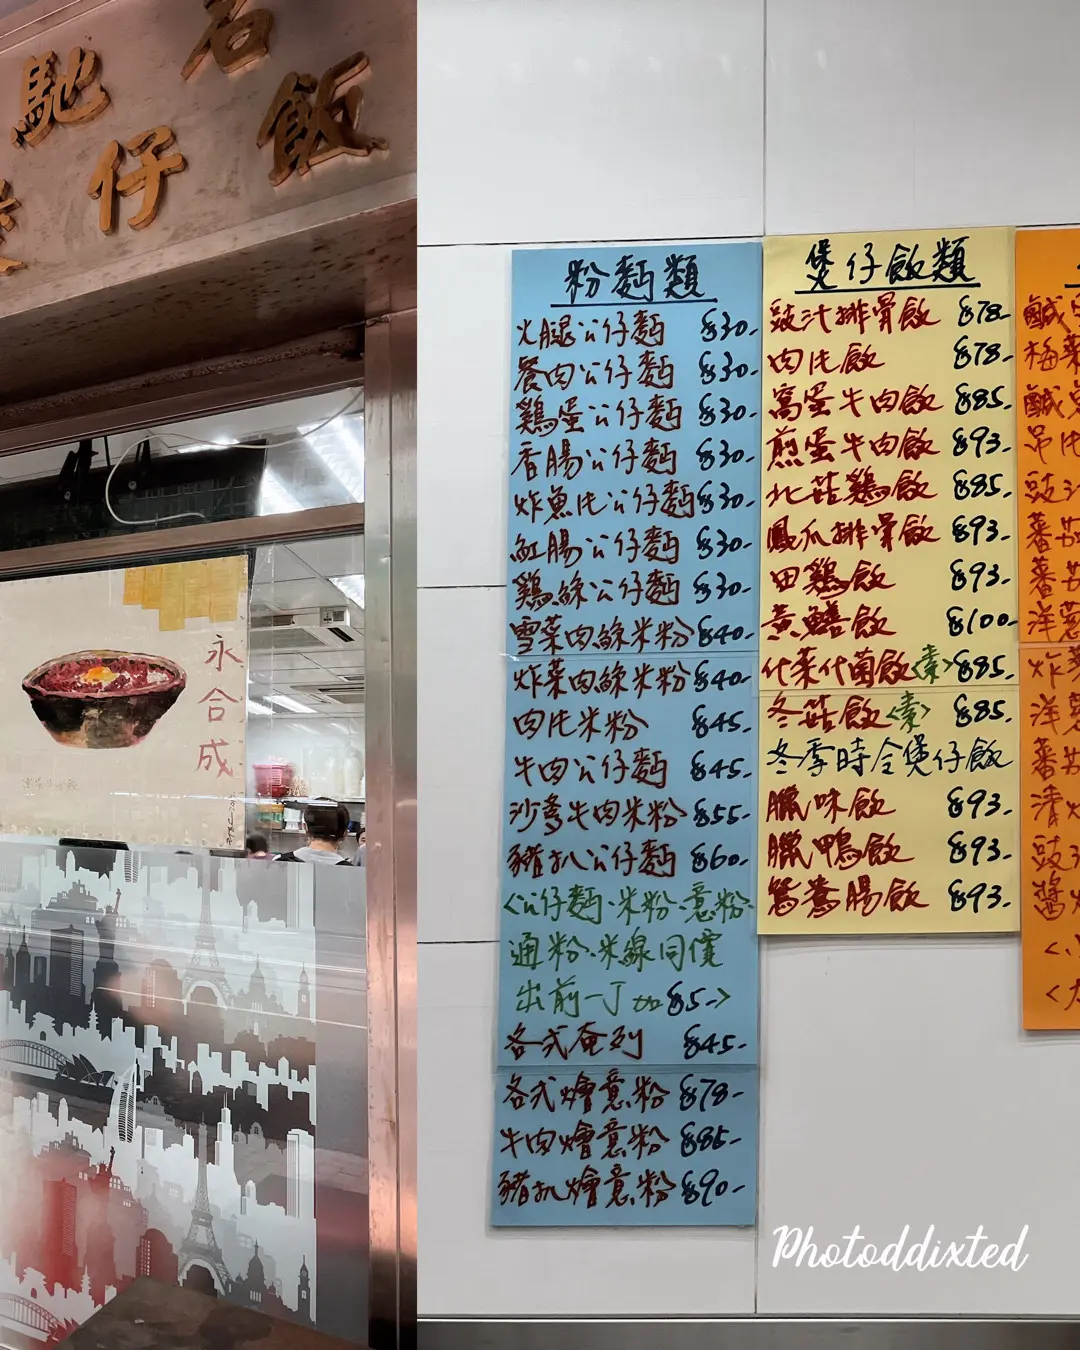 馳名
煲仔飯
永合成
粉麵類
火腿公仔麵 $30-
餐肉公仔麵 $30-
鷄蛋公仔麵 $30-
香腸公仔麵 $30-
炸魚片公仔麵 $30-
紅腸公仔麵 $30-
鷄絲公仔麵 $30-
雪菜肉絲米粉 $40-
炸菜肉絲米粉 $40-
肉片米粉 $45-
牛肉公仔麵 $45-
沙爹牛肉米粉 $55-
豬扒公仔麵 $60-
<公仔麵·米粉·意粉·
通粉·米線同價
出前一丁加$5->
各式奄列 $45-
各式燴意粉 $78-
牛肉燴意粉 $85-
豬扒燴意粉 $90-
煲仔飯類
豉汁排骨飯 $78-
肉片飯 $78-
窩蛋牛肉飯 $85-
煎蛋牛肉飯 $93-
北菇鷄飯 $85-
鳳爪排骨飯 $93-
田鷄飯 $93-
黃鱔飯 $100-
什菜什菌飯<素> $85-
冬菇飯<素> $85-
冬季時令煲仔飯
臘味飯 $93-
臘鴨飯 $93-
鴛鴦腸飯 $93-
鹹
梅菜
鹹魚
吊片
豉汁
蕃茄
蕃茄
洋蔥
炸菜
洋蔥
蕃茄
清炒
豉
醬
Photoddixted